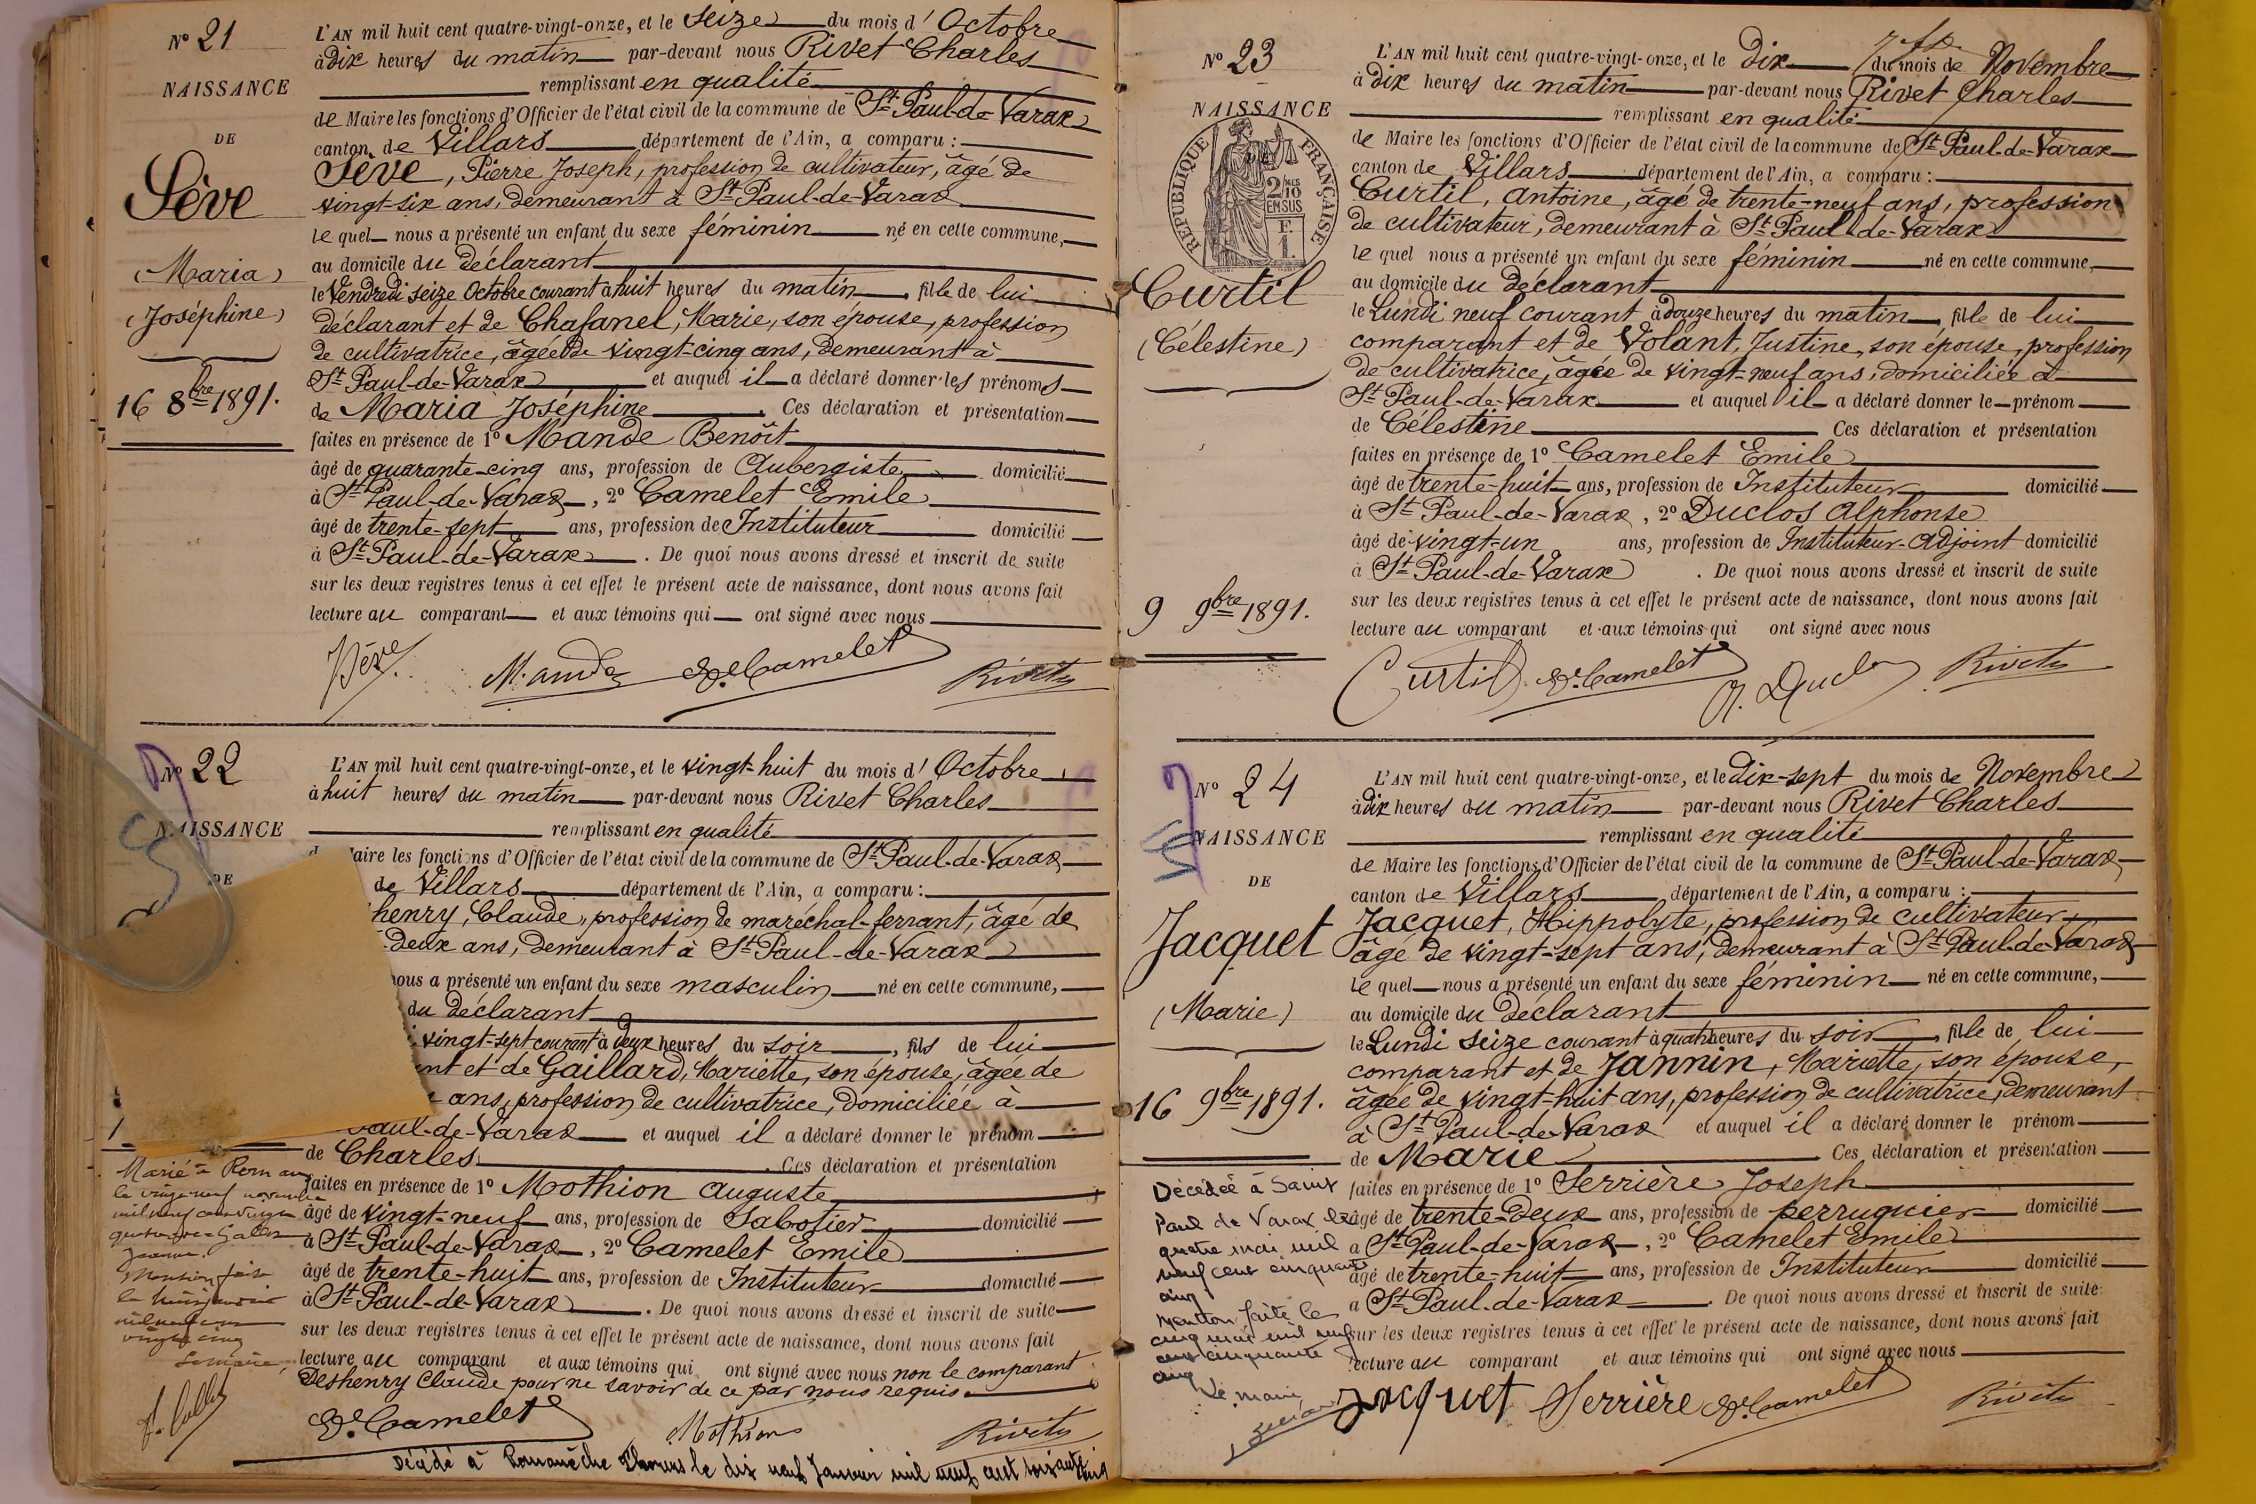 N° 21
NAISSANCE
DE
Sève
(Maria)
(Joséphine)
16 8bre 1891.
L'AN mil huit cent quatre-vingt-onze, et le seize du mois d'Octobre
à dix heures du matin par-devant nous Rivet Charles
remplissant en qualité
de Maire les fonctions d'Officier de l'état civil de la commune de St Paul-de-Varax
canton de Villars département de l'Ain, a comparu :
Sève, Pierre Joseph, profession de cultivateur, âgé de
vingt-six ans, demeurant à St Paul-de-Varax
le quel nous a présenté un enfant du sexe féminin né en cette commune,
au domicile du déclarant
le Vendredi seize Octobre courant à huit heures du matin, fille de lui
déclarant et de Chafanel, Marie, son épouse, profession
de cultivatrice, âgée de vingt-cinq ans, demeurant à
St Paul-de-Varax et auquel il a déclaré donner les prénoms
de Maria Joséphine. Ces déclaration et présentation
faites en présence de 1° Mande Benoît
âgé de quarante-cinq ans, profession de Aubergiste domicilié
à St Paul-de-Varax, 2° Camelet Emile
âgé de trente-sept ans, profession de Instituteur domicilié
à St Paul-de-Varax. De quoi nous avons dressé et inscrit de suite
sur les deux registres tenus à cet effet le présent acte de naissance, dont nous avons fait
lecture au comparant et aux témoins qui ont signé avec nous
Sève M. ande E. Camelet Rivet
N° 22
NAISSANCE
DE
L'AN mil huit cent quatre-vingt-onze, et le vingt-huit du mois d'Octobre
à huit heures du matin par-devant nous Rivet Charles
remplissant en qualité
aire les fonctions d'Officier de l'état civil de la commune de St Paul-de-Varax
de Villars département de l'Ain, a comparu :
henry, Claude, profession de maréchal-ferrant, âgé de
-deux ans, demeurant à St Paul-de-Varax
nous a présenté un enfant du sexe masculin né en cette commune,
du déclarant
vingt-sept courant à deux heures du soir, fils de lui
nt et de Gaillard, Mariette, son épouse, âgée de
ans, profession de cultivatrice, domiciliée à
Paul-de-Varax et auquel il a déclaré donner le prénom
de Charles. Ces déclaration et présentation
faites en présence de 1° Mothion Auguste
âgé de vingt-neuf ans, profession de Sabotier domicilié
à St Paul-de-Varax, 2° Camelet Emile
âgé de trente-huit ans, profession de Instituteur domicilié
à St Paul-de-Varax. De quoi nous avons dressé et inscrit de suite
sur les deux registres tenus à cet effet le présent acte de naissance, dont nous avons fait
lecture au comparant et aux témoins qui ont signé avec nous non le comparant
Deshenry Claude pour ne savoir de ce par nous requis
E. Camelet Mothion Rivet
Marié à
le vingt neuf novembre
mil neuf cent vingt
quatre
Jeanne.
Mention faite
le
mil neuf cent
vingt cinq
Le maire
Décédé à Romanèche Thorins le dix neuf Janvier mil neuf cent soixante
N° 23
NAISSANCE
REPUBLIQUE FRANÇAISE
2/10 EN SUS
1
Curtil
(Célestine)
9 9bre 1891.
L'AN mil huit cent quatre-vingt-onze, et le dix du mois de Novembre
à dix heures du matin par-devant nous Rivet Charles
remplissant en qualité
de Maire les fonctions d'Officier de l'état civil de la commune de St Paul-de-Varax
canton de Villars département de l'Ain, a comparu :
Curtil, Antoine, âgé de trente-neuf ans, profession
de cultivateur, demeurant à St Paul-de-Varax
le quel nous a présenté un enfant du sexe féminin né en cette commune,
au domicile du déclarant
le Lundi neuf courant à douze heures du matin, fille de lui
comparant et de Volant, Justine, son épouse, profession
de cultivatrice, âgée de vingt-neuf ans, domiciliée à
St Paul-de-Varax et auquel il a déclaré donner le prénom
de Célestine Ces déclaration et présentation
faites en présence de 1° Camelet Emile
âgé de trente-huit ans, profession de Instituteur domicilié
à St Paul-de-Varax, 2° Duclos Alphonse
âgé de vingt-un ans, profession de Instituteur-Adjoint domicilié
à St Paul-de-Varax. De quoi nous avons dressé et inscrit de suite
sur les deux registres tenus à cet effet le présent acte de naissance, dont nous avons fait
lecture au comparant et aux témoins qui ont signé avec nous
Curtil E. Camelet A. Duclos Rivet
N° 24
NAISSANCE
DE
Jacquet
(Marie)
16 9bre 1891.
L'AN mil huit cent quatre-vingt-onze, et le dix-sept du mois de Novembre
à dix heures du matin par-devant nous Rivet Charles
remplissant en qualité
de Maire les fonctions d'Officier de l'état civil de la commune de St Paul-de-Varax
canton de Villars, département de l'Ain, a comparu :
Jacquet, Hippolyte, profession de cultivateur
âgé de vingt-sept ans, demeurant à St Paul-de-Varax
le quel nous a présenté un enfant du sexe féminin né en cette commune,
au domicile du déclarant
le Lundi seize courant à quatre heures du soir, fille de lui
comparant et de Jannin, Mariette, son épouse,
âgée de vingt-huit ans, profession de cultivatrice, demeurant
à St Paul-de-Varax et auquel il a déclaré donner le prénom
de Marie Ces déclaration et présentation
faites en présence de 1° Serrière Joseph
âgé de trente-deux ans, profession de perruquier domicilié
à St Paul-de-Varax, 2° Camelet Emile
âgé de trente-huit ans, profession de Instituteur domicilié
à St Paul-de-Varax. De quoi nous avons dressé et inscrit de suite
sur les deux registres tenus à cet effet le présent acte de naissance, dont nous avons fait
lecture au comparant et aux témoins qui ont signé avec nous
Jacquet Serrière E. Camelet Rivet
Décédée à Saint
Paul de Varax le
quatre mai mil
neuf cent cinquante
cinq
Mention faite le
cinq mai mil neuf
cent cinquante
cinq
Le maire